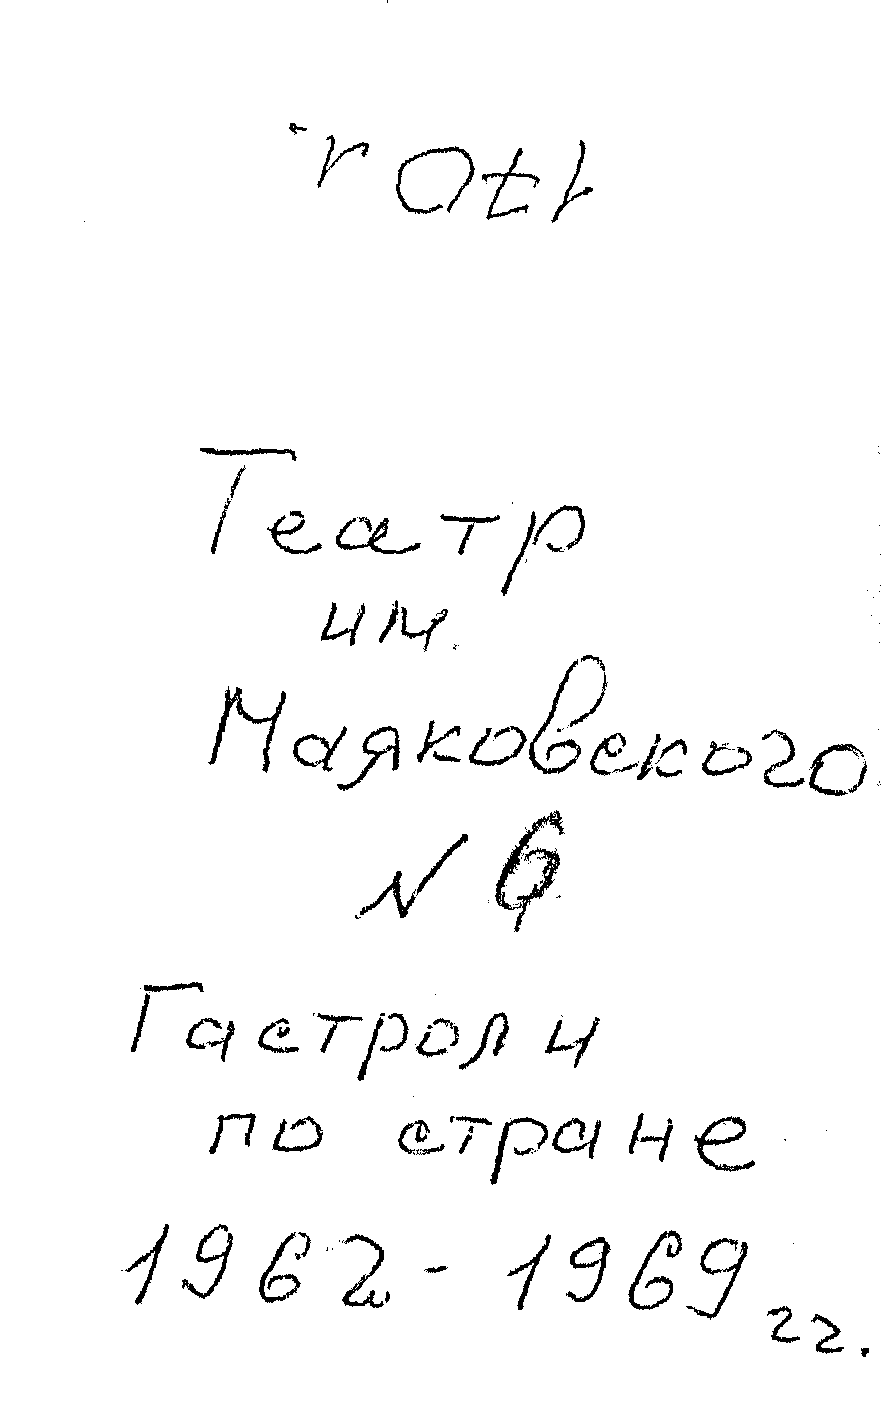 170 г.
Театр
им.
Маяковского
N 6
Гастроли
по стране
1962 - 1969 гг.